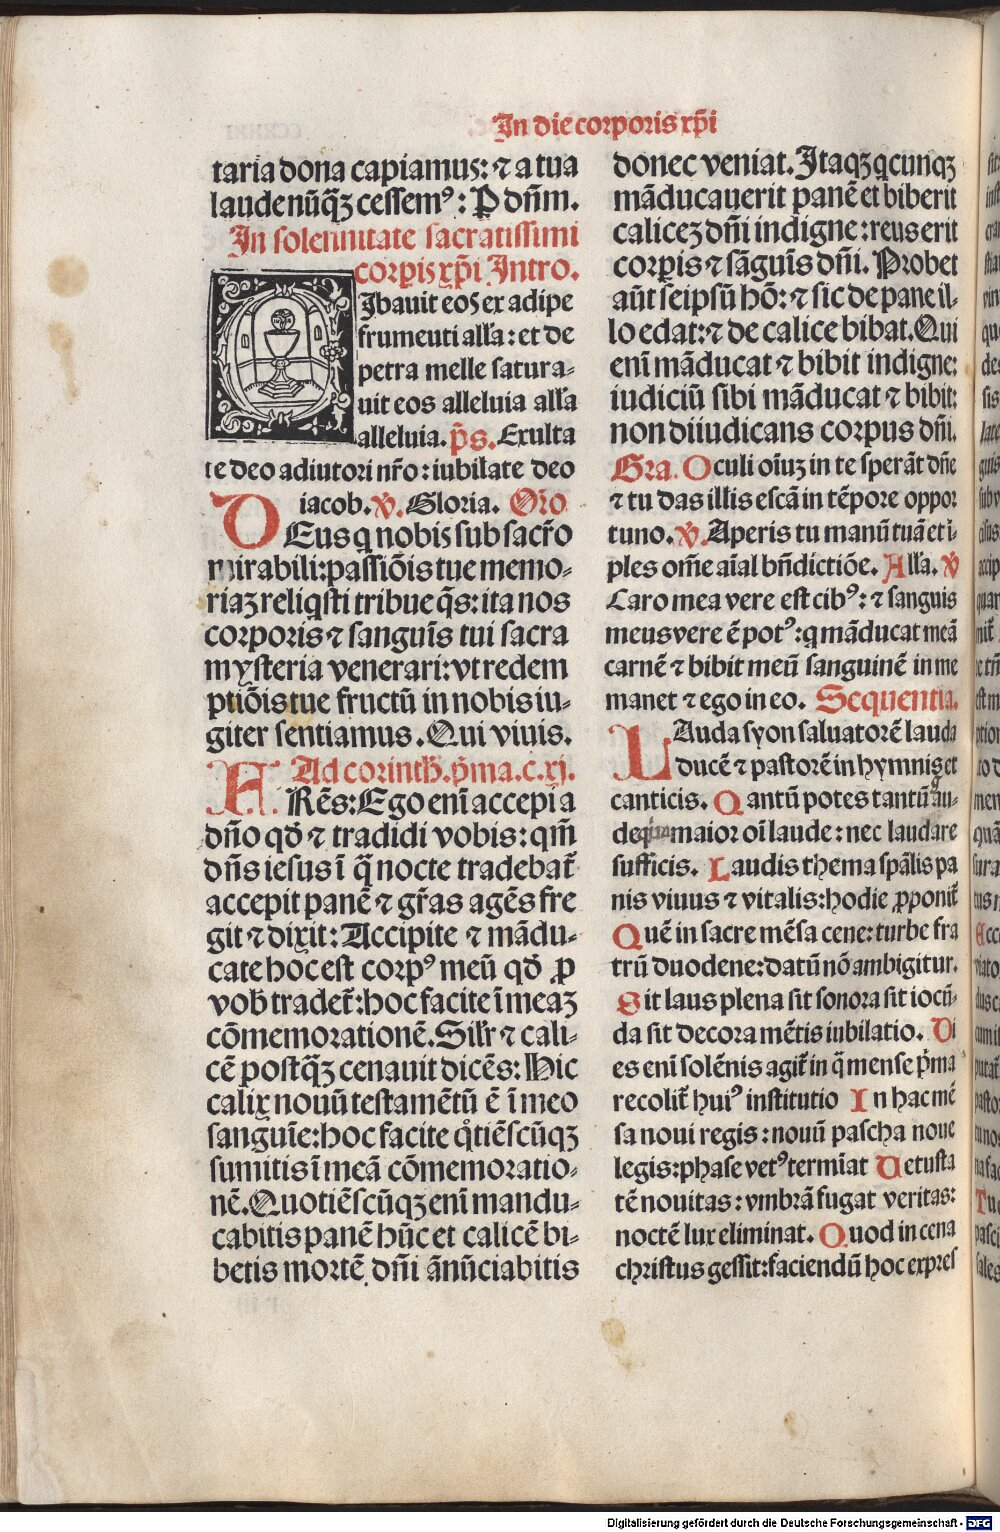 In die corporis xp̄i
taria dona capiamus: ⁊ a tua
laude nūq̄ꝫ cessemꝰ: P dn̄m.
In solennitate sacratissimi
corꝑis xp̄i Intro.
Jbauit eos ex adipe
frumenti all'a: et de
petra melle satura-
uit eos alleluia all'a
alleluia. p̄s. Exulta
te deo adiutori nr̄o: iubilate deo
iacob. ꝟ. Gloria. Oro
DEus q nobis sub sacr̄o
mirabili: passiōis tue memo-
riaꝫ reliqsti tribue q̄s: ita nos
corporis ⁊ sanguīs tui sacra
mysteria venerari: vt redem
ptiōis tue fructū in nobis iu-
giter sentiamus. Qui viuis.
Ad corinth. p̄ma. c. xj.
FRēs: Ego enī accepi a
dn̄o qđ ⁊ tradidi vobis: qm̄
dn̄s iesus ī q̄ nocte tradebat̄
accepit panē ⁊ gr̄as agēs fre
git ⁊ dixit: Accipite ⁊ mādu-
cate hoc est corpꝰ meū qđ ꝓ
vob̄ tradet̄: hoc facite ī meaꝫ
cōmemorationē. Sil'r ⁊ cali-
cē postq̄ꝫ cenauit dicēs: Hic
calix nouū testamētū ē ī meo
sanguīe: hoc facite q̊tiēscūqꝫ
sumitis ī meā cōmemoratio-
nē. Quotiēscūqꝫ enī mandu-
cabitis panē hūc et calicē bi-
betis mortē dn̄i ānūciabitis
donec veniat. Itaqꝫ qcunqꝫ
māducauerit panē et biberit
caliceꝫ dn̄i indigne: reus erit
corꝑis ⁊ sāguīs dn̄i. Probet
aūt seipsū hō: ⁊ sic de pane il-
lo edat: ⁊ de calice bibat. Qui
enī māducat ⁊ bibit indigne:
iudiciū sibi māducat ⁊ bibit:
non diiudicans corpus dn̄i.
Gra. Oculi oīuꝫ in te sperāt dn̄e
⁊ tu das illis escā in tēpore oppor
tuno. ꝟ. Aperis tu manū tuā et ī-
ples om̄e aīal bn̄dictiōe. All'a. ꝟ
Caro mea vere est cibꝰ: ⁊ sanguis
meus vere ē potꝰ: q māducat meā
carnē ⁊ bibit meū sanguinē in me
manet ⁊ ego in eo. Sequentia.
LAuda syon saluatorē lauda
ducē ⁊ pastorē in hymnis et
canticis. Qantū potes tantū au-
de maior oī laude: nec laudare
sufficis. Laudis thema sp̄alis pa
nis viuus ⁊ vitalis: hodie ꝓponit̄
Quē in sacre mēsa cene: turbe fra
trū duodene: datū nō ambigitur.
Sit laus plena sit sonora sit iocū-
da sit decora mētis iubilatio. Di
es enī solēnis agit̄ in q̄ mense p̄ma
recolit̄ huiꝰ institutio In hac mē
sa noui regis: nouū pascha noue
legis: phase vetꝰ termīat Vetusta
tē nouitas: vmbrā fugat veritas:
noctē lux eliminat. Quod in cena
christus gessit: faciendū hoc expres
Digitalisierung gefördert durch die Deutsche Forschungsgemeinschaft - DFG